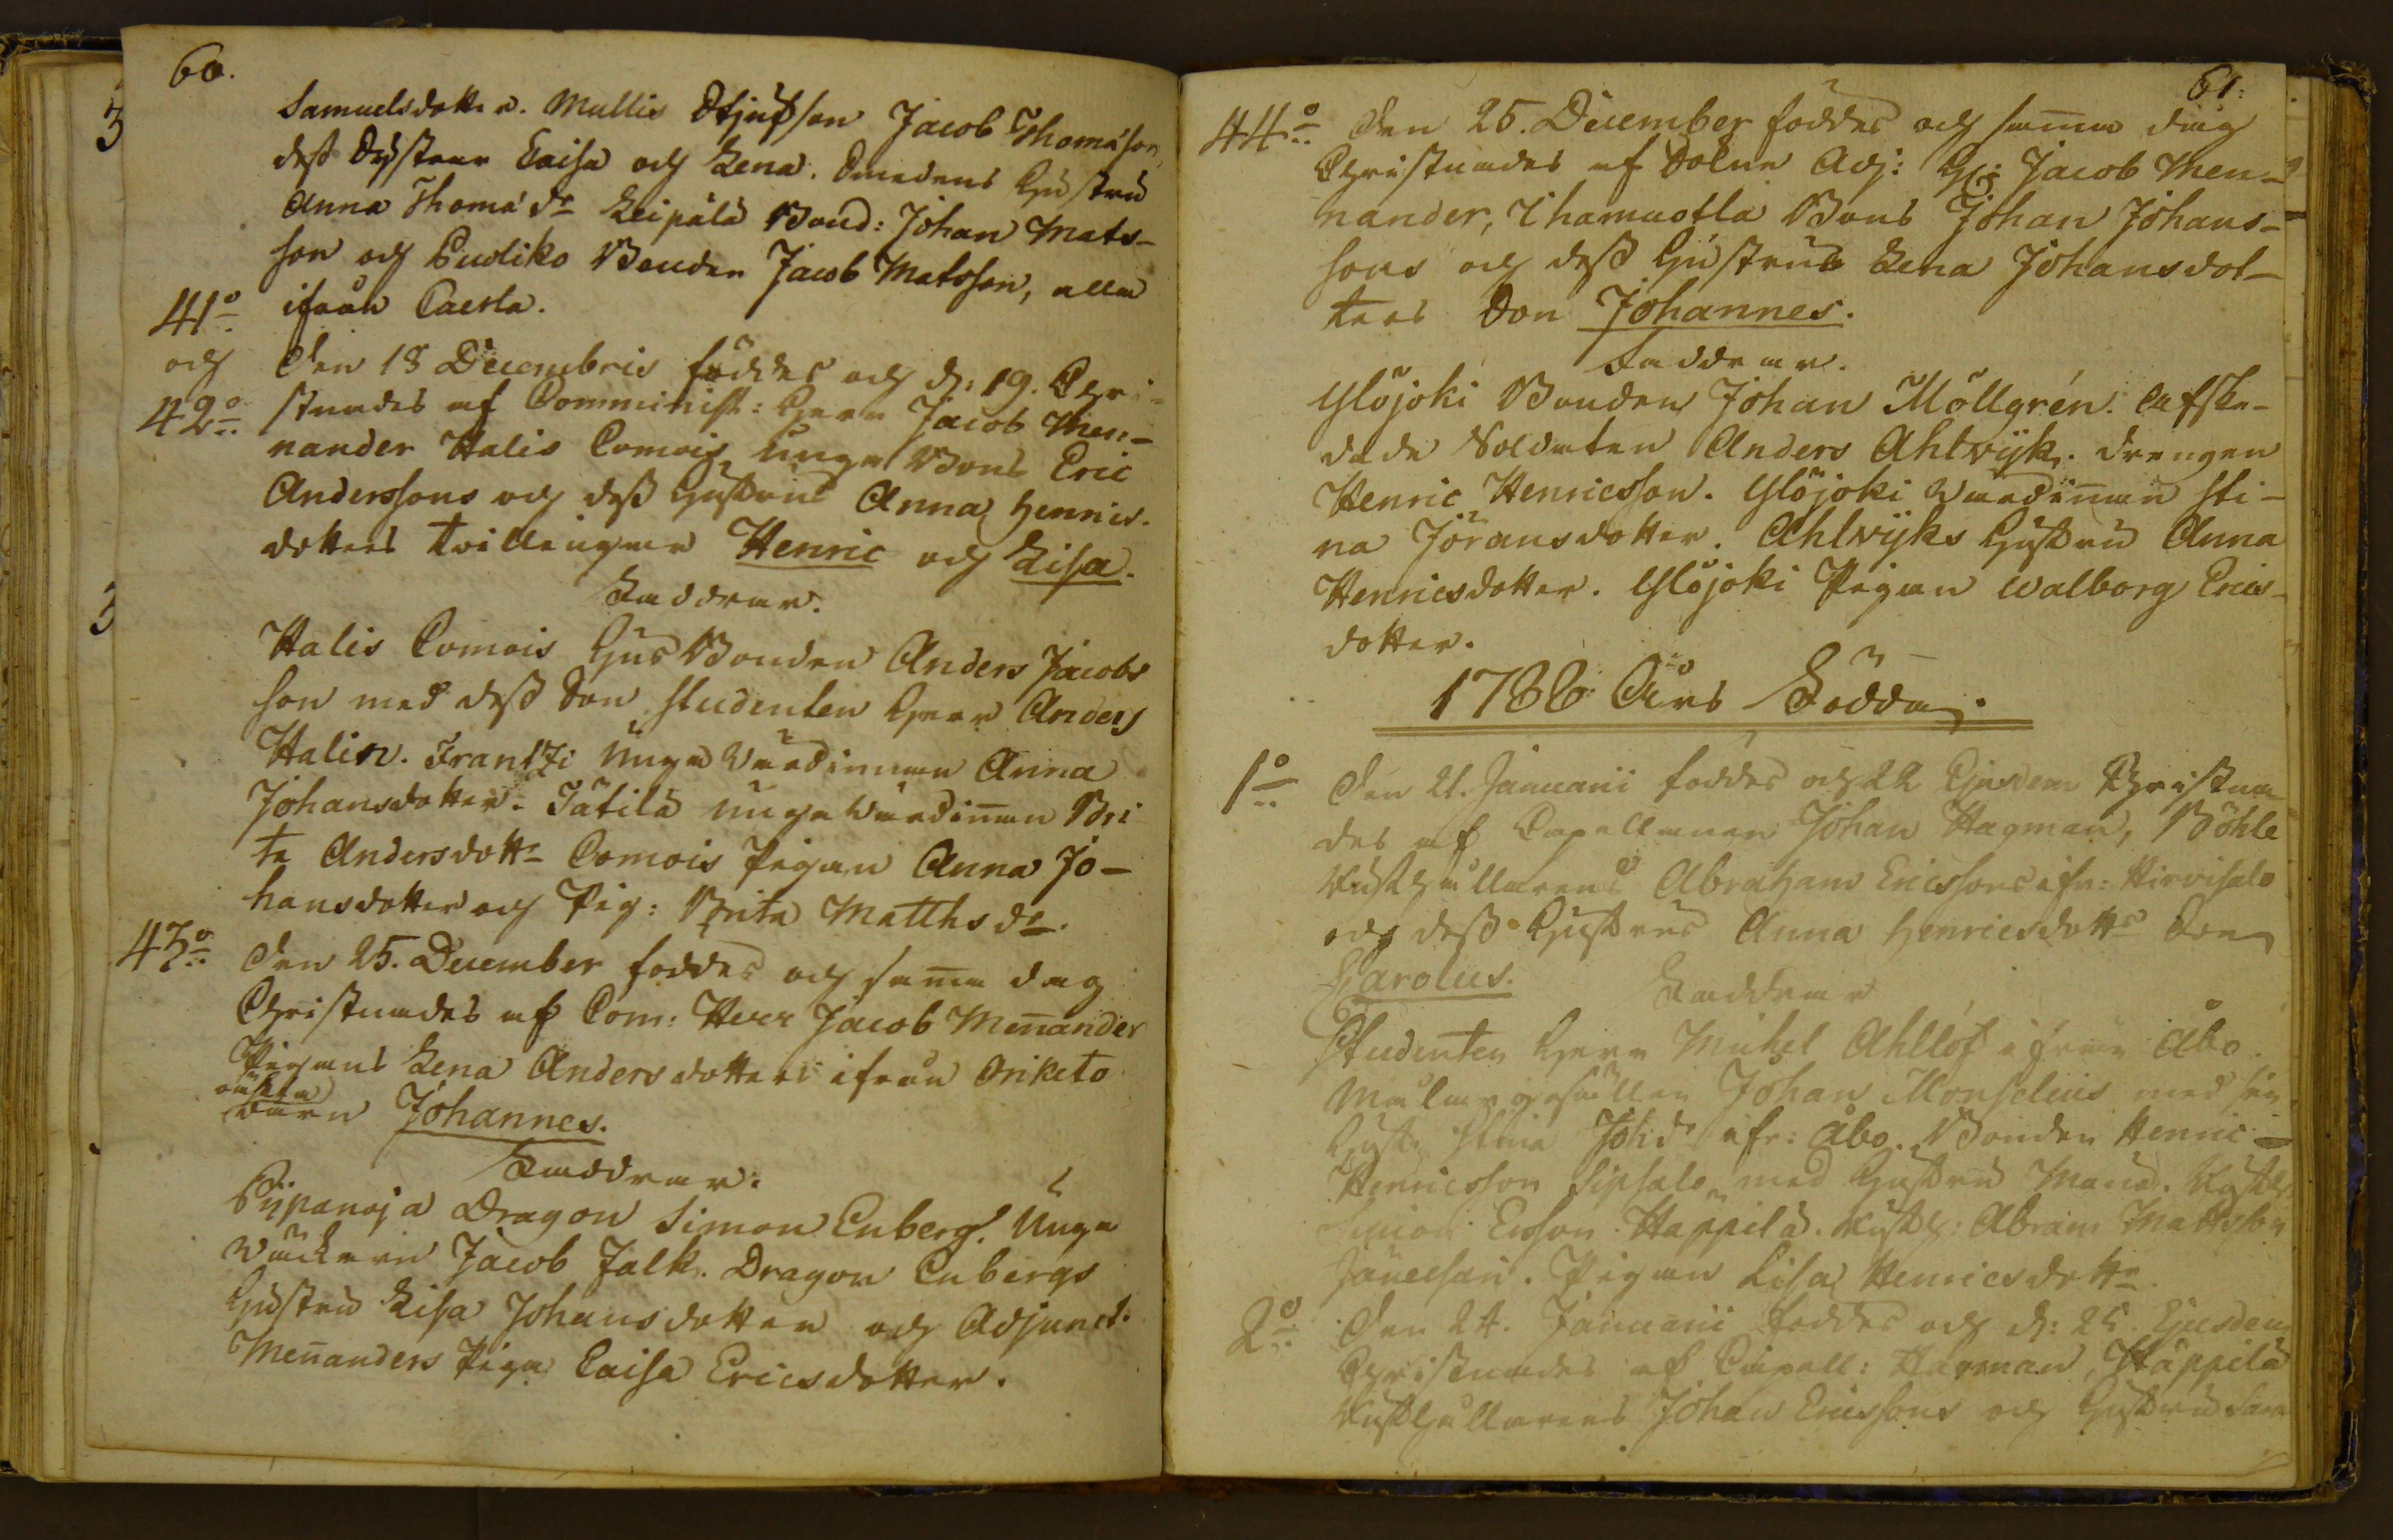 60.
Samuelsdotter. Mullis Stjufson Jacob Thomáson,
dess Systrar Caisa och Lena. Smedens Hustru
Anna Thomá dr Leipälä Bond: Johan Mats-
son och Pudiko Bonden Jacob Matsson, alla
ifrån Caerla.
41o
och
42o
Den 18 Decembris föddes och d: 19. Chri-
stnades af Comminist: Herr Jacob Men-
nander Halis Comois unga Bons Eric
Anderssons och dess Hustrus Anna Henrics-
dotters tvillingar Henric och Lisa.
Faddrar.
Halis Comois Hus Bonden Anders Jacobs
son med dess Son Studenten Herr Anders
Halin. Frantzi Unga Värdinnan Anna
Johansdotter. Tätilä unga Värdinnan Bri
ta Andersdottr Comois Pigan Anna Jo-
hansdotter och Pig: Brita Matths dr.
43o
Den 25. December föddes och samma dag
Christnades af Com: Herr Jacob Mennander
Pigans Lena Andersdotters ifrån Oriketo
oäkta
Barn Johannes.
Faddrar.
Pijpanoja Dragon Simon Enberg. Unga
Jacob Falk. Dragon Enbergs
Hustru Lisa Johansdotter och Adjunct.
Mennanders Piga Caisa Ericsdotter.
61:
44o
Den 25. December föddes och samma dag
Christnades af Solne Adj: H: Jacob Men-
nander, Ihamuotla Bons Johan Johans-
sons och dess Hustrus Lena Johansdot-
ters Son Johannes.
Faddrar.
Ylöjoki Bonden Johan Möllgrén. Afske-
dade Soldaten Anders Ahlvijk. Drengen
Henric Henricsson. Ylöjoki Värdinnan Sti-
na Jöransdotter. Ahlvijks Hustru Anna
Henricsdotter. Ylöjoki Pigan Walborg Erics-
dotter.
1786 Års Födda.
1o
Den 21. Januarii föddes och 22 Ejusdem Christna
des af Capellanen Johan Hagman, Böhle
Rusthållarens Abrahams Ericssons ifr: Hirvisalo
och dess Hustrus Anna Henricsdottrs Son
Carolus.
Faddrar
Studenten Herr Michel Ahllöf ifrån Åbo.
Målargesällen Johan Monselius med sin
Hustr. Stina Joh dr ifr: Åbo. Bonden Henric
Henricsson Sipsalo med Hustru Maria. Rusth.
Ersson Happilä. Rusth: Abram Mattsson
Pigan Lisa Henricsdottr
2o
Den 24. Januarii föddes och d: 25. Ejusdem
Christnades af Capell: Hagman, Häppilä
Rusthållarens Johan Ericssons och Hustrus Sara